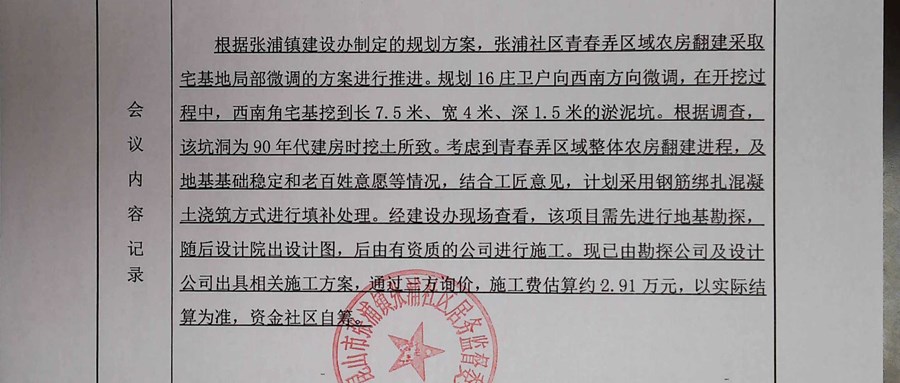 会议内容记录
根据张浦镇建设办制定的规划方案，张浦社区青春弄区域农房翻建采取
宅基地局部微调的方案进行推进。规划16庄卫户向西南方向微调，在开挖过
程中，西南角宅基挖到长7.5米、宽4米、深1.5米的淤泥坑。根据调查，
该坑洞为90年代建房时挖土所致。考虑到青春弄区域整体农房翻建进程，及
地基基础稳定和老百姓意愿等情况，结合工匠意见，计划采用钢筋绑扎混凝
土浇筑方式进行填补处理。经建设办现场查看，该项目需先进行地基勘探，
随后设计院出设计图，后由有资质的公司进行施工。现已由勘探公司及设计
公司出具相关施工方案，通过三方询价，施工费估算约2.91万元，以实际结
算为准，资金社区自筹。
昆山市张浦镇张浦社区居务监督委